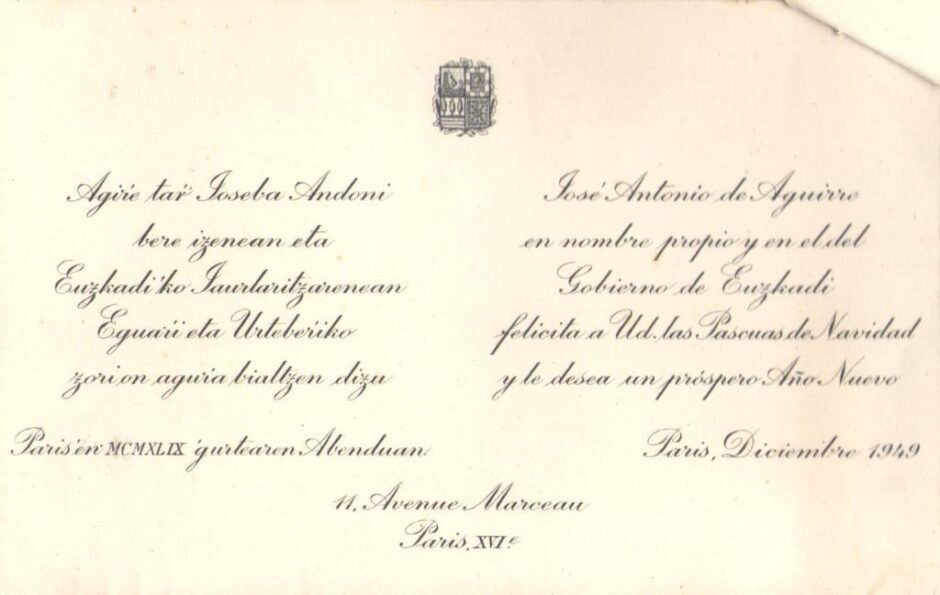 Agiŕe taŕ Joseba Andoni
bere izenean eta
Euzkadi'ko Jaurlaritzarenean
Eguaŕi eta Urtebeŕiko
zorion aguŕa bialtzen dizu
Paris'en MCMXLIX 'gurtearen Abenduan.
José Antonio de Aguirre
en nombre propio y en el del
Gobierno de Euzkadi
felicita a Ud. las Pascuas de Navidad
y le desea un próspero Año Nuevo
Paris, Diciembre 1949
11, Avenue Marceau
Paris, XVIe